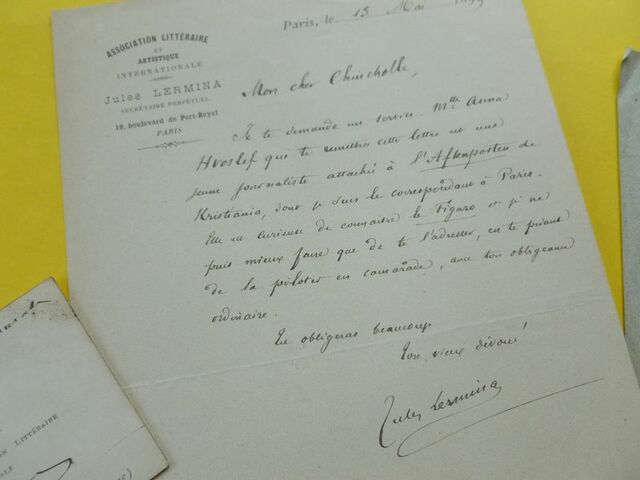 Paris, le 13 Mai 1899
ASSOCIATION LITTÉRAIRE
ET
ARTISTIQUE
INTERNATIONALE
Jules LERMINA
SECRÉTAIRE PERPÉTUEL
19, boulevard de Port-Royal
PARIS
Mon cher Chincholle,
Je te demande un service. Mlle Anna
Hvoslef qui te remettra cette lettre est une
jeune journaliste attachée à l'Aftenposten de
Kristiania, dont je suis le correspondant à Paris.
Elle est curieuse de connaître le Figaro et je ne
puis mieux faire que de te l'adresser, en te priant
de la piloter en camarade, avec ton obligeance
ordinaire.
Tu obligeras beaucoup
Ton vieux dévoué
Jules Lermina
LITTÉRAIRE